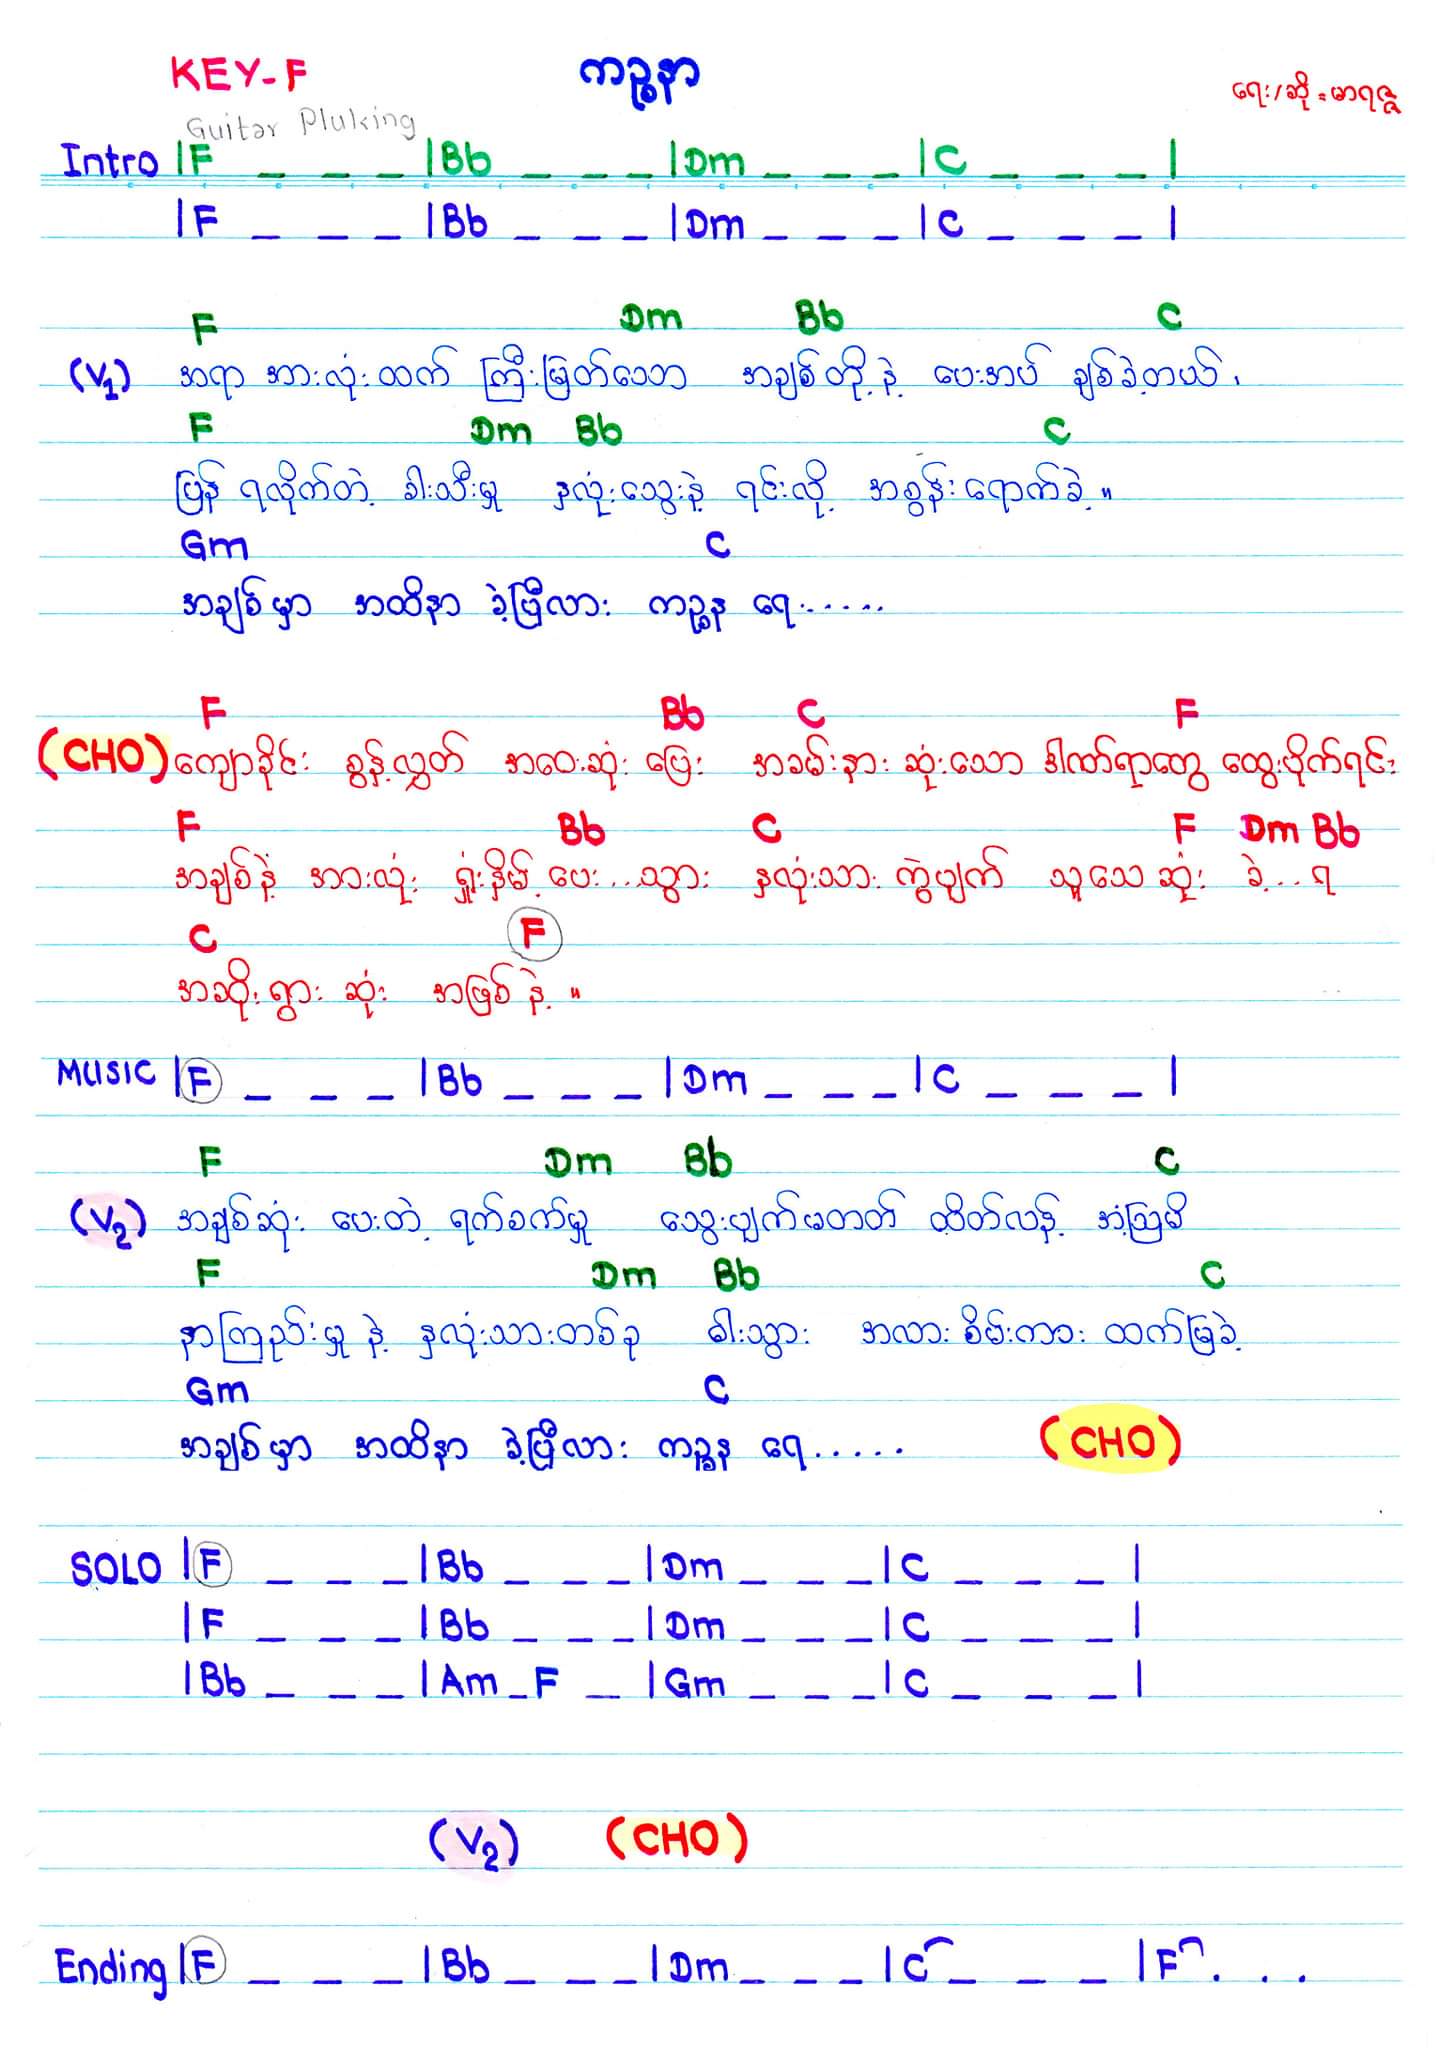 KEY-F
ကဉ္စနာ
ရေး/ဆို = မာရဇ္ဇ
Guitar Pluking
Intro |F _ _ _ |Bb _ _ _ |Dm _ _ _ |C _ _ _ |
|F _ _ _ |Bb _ _ _ |Dm _ _ _ |C _ _ _ |
F Dm Bb C
(V1) အရာ အားလုံးထက် ကြီးမြတ်သော အချစ်တို့နဲ့ ပေးအပ် ချစ်ခဲ့တယ်၊
F Dm Bb C
ပြန် ရလိုက်တဲ့ ခါးသီးမှု နှလုံးသွေးနဲ့ ရင်းလို့ အစွန်းရောက်ခဲ့။
Gm C
အချစ်မှာ အထိနာ ခဲ့ပြီလား ကဉ္စန ရေ.....
F Bb C F
(CHO) ကျောခိုင်း စွန့်လွှတ် အဝေးဆုံး ပြေး အခမ်းနား ဆုံးသော ဒဏ်ရာတွေ ထွေးပိုက်ရင်း
F Bb C F Dm Bb
အချစ်နဲ့ အားလုံး ရှုံးနိမ့် ပေး...သွား နှလုံးသား ကွဲပျက် သူသေ ဆုံး ခဲ့...ရ
C F
အဆိုးရွား ဆုံး အဖြစ်နဲ့။
MUSIC |F _ _ _ |Bb _ _ _ |Dm _ _ _ |C _ _ _ |
F Dm Bb C
(V2) အချစ်ဆုံး ပေးတဲ့ ရက်စက်မှု သွေးပျက်မတတ် ထိတ်လန့် အံ့သြမိ
F Dm Bb C
နာကြည်းမှုနဲ့ နှလုံးသားတစ်ခု ဓါးသွား အလား စိမ်းကား ထက်မြခဲ့
Gm C
အချစ်မှာ အထိနာ ခဲ့ပြီလား ကဉ္စန ရေ..... (CHO)
SOLO |F _ _ _ |Bb _ _ _ |Dm _ _ _ |C _ _ _ |
|F _ _ _ |Bb _ _ _ |Dm _ _ _ |C _ _ _ |
|Bb _ _ _ |Am _ F _ |Gm _ _ _ |C _ _ _ |
(V2) (CHO)
Ending |F _ _ _ |Bb _ _ _ |Dm _ _ _ |C _ _ _ |F . . .